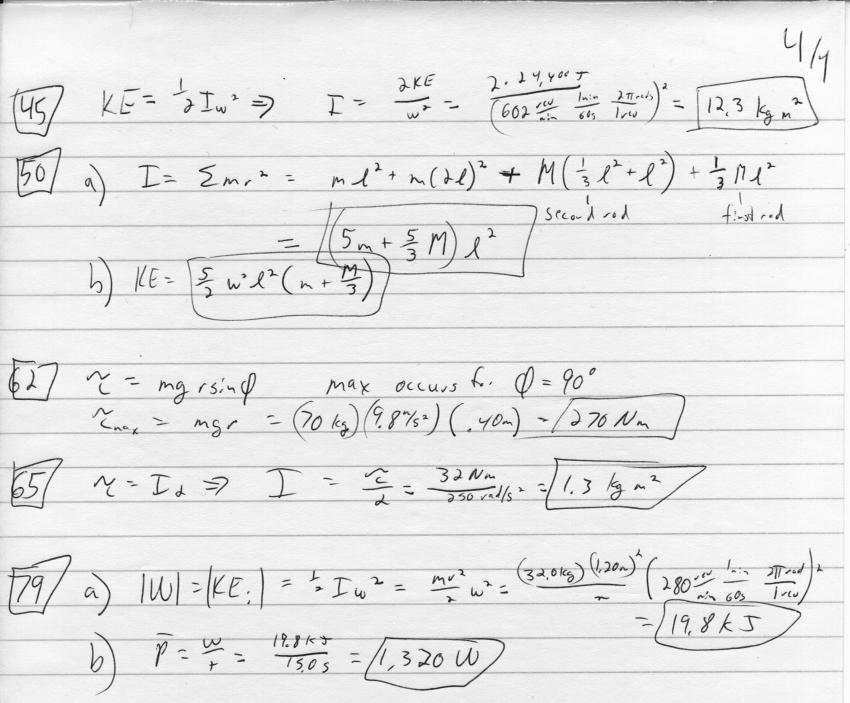 4/4
45 KE = 1/2 Iω² ⇒ I = 2KE/ω² = 2·24,400 J/(602 rev/min 1min/60s 2π rads/1rev)² = 12.3 kg m²
50 a) I = Σmr² = ml² + m(2l)² + M(1/3 l² + l²) + 1/3 Ml²
second rod first rod
= (5m + 5/3 M) l²
b) KE = 5/2 ω² l² (m + M/3)
62 τ = mg r sinφ max occurs for φ = 90°
τmax = mgr = (70 kg)(9.8 m/s²)(.40m) = 270 Nm
65 τ = Iα ⇒ I = τ/α = 32 Nm/250 rad/s² = 1.3 kg m²
79 a) |W| = |KEi| = 1/2 Iω² = mr²/2 ω² = (32.0kg)(1.20m)²/2 (280 rev/min 1min/60s 2π rad/1rev)²
= 19.8 kJ
b) P̅ = W/t = 19.8 kJ/15.0 s = 1,320 W